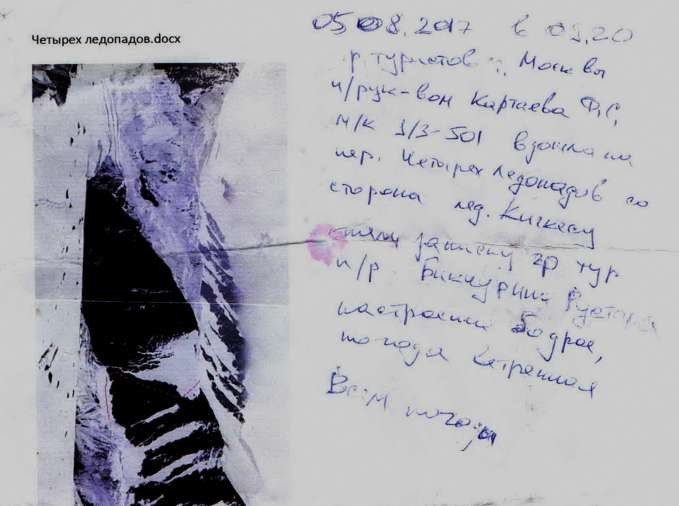 Четырех ледопадов.docx
05.08.2017 в 09.20
гр туристов г. Москвы
п/рук-вом Картаева Ф.С.
м/к 1/3-501 взошла на
пер. Четырех ледопадов со
стороны лед. Кичкесу
сняли записку гр тур
п/р Бикчурина Рустама
настроение бодрое,
погода ветренная
Всем